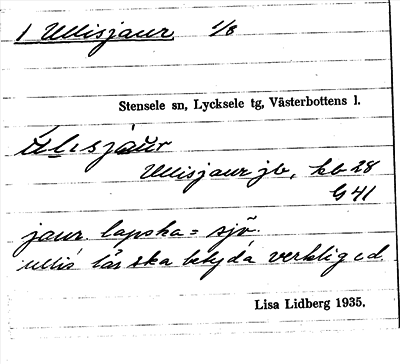 1 Ullisjaur 1/8
Stensele sn, Lycksele tg, Västerbottens l.
ulısjàur
Ullisjaur jb, kb 28
G 41
jaur lapska = sjö.
ullis lär ska betyda verklig
Lisa Lidberg 1935.